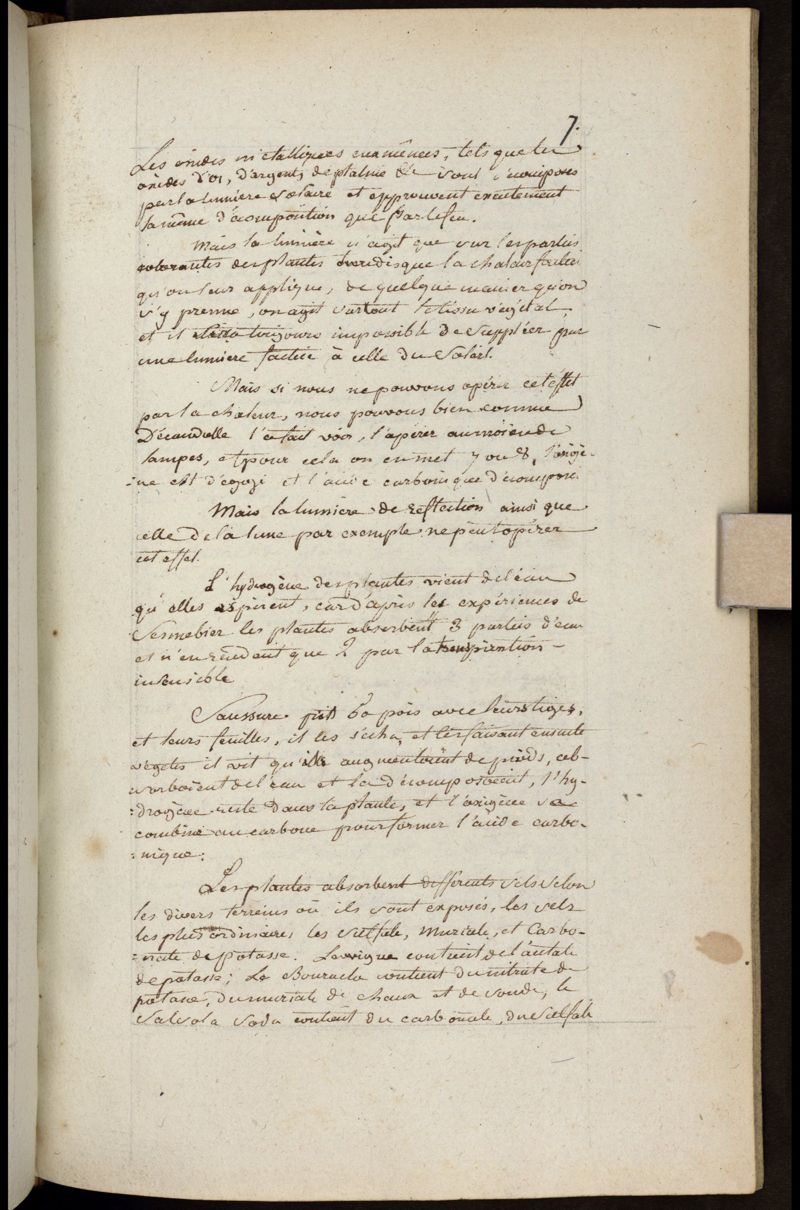 7.
Les oxides métalliques euxmêmes, tels que les
oxides d'or, d'argent, de platine &c sont décomposés
par la lumiere solaire et epprouvent exactement
la même décomposition que par le feu.
Mais la lumière n'agit que sur les parties
colorantes des plantes tandisque la chaleur factice
qu'on leur applique, de quelque manier qu'on
s'y prenne, on agit surtout le tissu végétal,
et il toujours impossible de suppléer par
une lumiere factice à celle du Soleil.
Mais si nous ne pouvons opérer cet effet
par la chaleur, nous pouvons bien comme
Décandolle l'a fait voir, l'opérer aumoien de
lampes, et pour cela on en met 7 ou 8, l'oxigè-
ne est dégagé et l'acide carbonique décomposé.
Mais la lumière de reflection ainsi que
celle de la lune par exemple ne peut opérer
cet effet.
L'hydrogène des plantes vient de l'eau
qu'elles aspirent, car d'après les expériences de
Sennebier les plantes absorbent 3 parties d'eau
et n'en rendent que 2 par la transpiration
insensible
Saussure prit 60 pois avec leurs tiges,
et leurs feuilles, il les sécha, et les faisant ensuite
végéter il vit qu'ils augmentoient de poids, ab-
sorboient de l'eau et la décomposoient, l'hy-
:drogène reste dans la plante, et l'oxigène se
combine au carbone pour former l'acide carbo-
:nique:
Les plantes absorbent differents sels selon
les divers terreins où ils sont exposés, les sels
les plus ordinaires, les sulfate, muriate, et carbo-
:nate de potasse. La vigne contient de l'acétate
de potasse; La Bourache contient du nitrate de
potasse, du muriate de chaux et de soude, le
Salsola Soda contient du carbonate, du sulfate